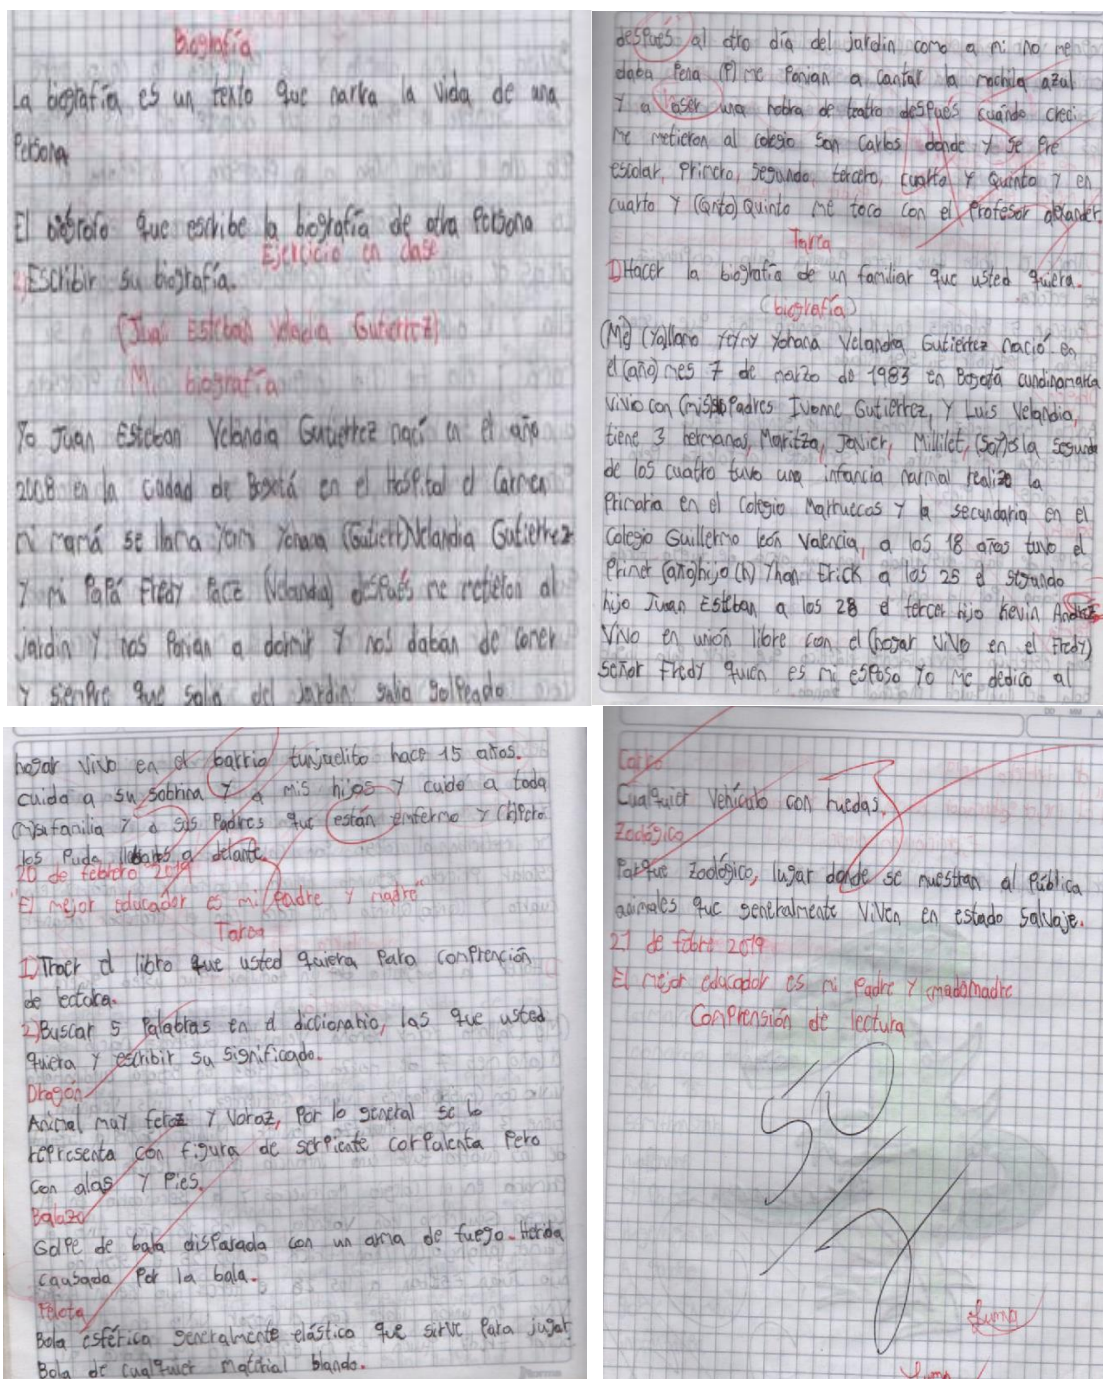 Biografía
La biografía es un texto que narra la vida de una
Persona
El biografo que escribe la biografía de otra Persona
Ejercicio en clase
1) Escribir su biografía.
(Juan Esteban Velandia Gutierrez)
Mi biografía
Yo Juan Esteban Velandia Gutierrez nací en el año
2008 en la ciudad de Bogotá en el Hospital el Carmen
mi mamá se llama Yeni Yohana (Gutierr) Velandia Gutierrez
Y mi Papá Fredy Paez (Velandia) después me metieron al
Jardin Y nos Ponian a dormir Y nos daban de comer
Y siempre que salia del Jardin salia golpeado
después al otro día del jardin como a mi no me
daba Pena (P) me Ponian a cantar la mochila azul
Y a aser una hobra de teatro después cuando creci
me metieron al colegio San Carlos donde Y se Pre
escolar, Primero, Segundo, tercero, cuarto Y Quinto Y en
cuarto Y (Qnto) Quinto me toco con el Profesor
Tarea
1) Hacer la biografía de un familiar que usted quiera.
(biografía)
(Me) (Yo) llamo Yohana Velandia Gutierrez nació en
el (año) mes 7 de marzo de 1983 en Bogotá cundinamarca
Vivio con (mis) Padres Ivonne Gutierrez, Y Luis Velandia,
tiene 3 hermanas, Maritza, Javier, Millilet, (Soy) es la segunda
de los cuatro tuvo una infancia normal realizo la
Primaria en el Colegio Marruecos Y la secundaria en el
Colegio Guillermo león Valencia, a los 18 años tuvo el
Primer (año) hijo (h) Yhan Erick a los 25 el segundo
hijo Juan Esteban a los 28 el tercer hijo kevin Andres
Vivo en unión libre con el (hogar ViVo en el Fredy)
señor Fredy quien es mi esposo Yo me dedico al
hogar vivo en el barrio tunjuelito hace 15 años.
cuida a su sobrina Y a mis hijos Y cuido a toda
familia Y a sus Padres que están enfermo Y
los Puda a delante.
20 de febrero 2019
"El mejor educador es mi Padre y madre"
Tarea
1) Traer el libro que usted quiera Para comprención
de lectora.
2) Buscar 5 Palabras en el diccionario, las que usted
quiera Y escribir su significado.
Dragón
Animal muy feroz Y Voraz, Por lo general se lo
representa con figura de serpiente corpalenta Pero
con alas Y Pies.
Balazo
Golpe de bala disparada con un arma de fuego. Herida
causada Por la bala.
Pelota
Bola esférica generalmente elástica que sirve Para jugar
Bola de cualquier material blando.
Carro
Cualquier Vehículo con ruedas.
Zoológico
Parque Zoológico, lugar donde se muestran al Pública
animales que generalmente Viven en estado salvaje.
21 de febre 2019
El mejor educador es mi Padre Y madre
Comprensión de lectura